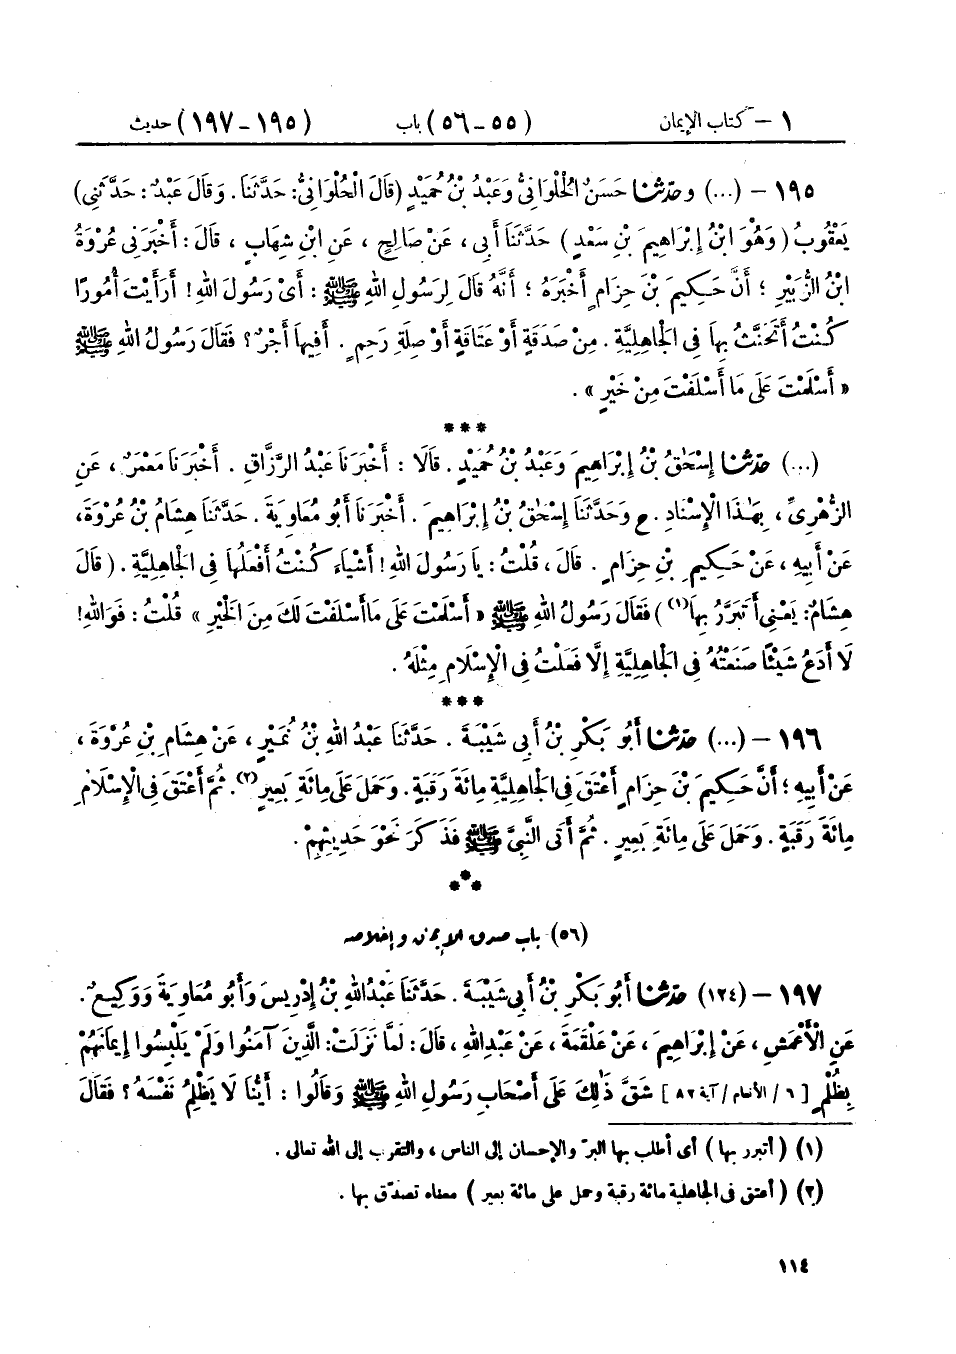 ١ – كتاب الإيمان (٥٥ – ٥٦) باب (١٩٥ – ١٩٧) حديث
١٩٥ – (...) وحدثنا حَسَنٌ الْحُلْوَانِىُّ وَعَبْدُ بْنُ حُمَيْدٍ (قَالَ الْحُلْوَانِىُّ: حَدَّثَنَا . وَقَالَ عَبْدٌ: حَدَّثَنِى)
يَعْقُوبُ (وَهُوَ ابْنُ إِبْرَاهِيمَ بْنِ سَعْدٍ) حَدَّثَنَا أَبِى ، عَنْ صَالِحٍ ، عَنِ ابْنِ شِهَابٍ ، قَالَ: أَخْبَرَنِى عُرْوَةُ
ابْنُ الزُّبَيْرِ ؛ أَنَّ حَكِيمَ بْنَ حِزَامٍ أَخْبَرَهُ ؛ أَنَّهُ قَالَ لِرَسُولِ اللهِ ﷺ : أَىْ رَسُولَ اللهِ! أَرَأَيْتَ أُمُورًا
كُنْتُ أَتَحَنَّثُ بِهَا فِى الْجَاهِلِيَّةِ . مِنْ صَدَقَةٍ أَوْ عَتَاقَةٍ أَوْ صِلَةِ رَحِمٍ . أَفِيهَا أَجْرٌ؟ فَقَالَ رَسُولُ اللهِ ﷺ
« أَسْلَمْتَ عَلَى مَا أَسْلَفْتَ مِنْ خَيْرٍ » .
***
(...) حدثنا إِسْحَقُ بْنُ إِبْرَاهِيمَ وَعَبْدُ بْنُ حُمَيْدٍ . قَالَا : أَخْبَرَنَا عَبْدُ الرَّزَّاقِ . أَخْبَرَنَا مَعْمَرٌ ، عَنِ
الزُّهْرِىِّ ، بِهَذَا الْإِسْنَادِ . ح وَحَدَّثَنَا إِسْحَقُ بْنُ إِبْرَاهِيمَ . أَخْبَرَنَا أَبُو مُعَاوِيَةَ . حَدَّثَنَا هِشَامُ بْنُ عُرْوَةَ،
عَنْ أَبِيهِ ، عَنْ حَكِيمِ بْنِ حِزَامٍ . قَالَ ، قُلْتُ: يَا رَسُولَ اللهِ! أَشْيَاءَ كُنْتُ أَفْعَلُهَا فِى الْجَاهِلِيَّةِ . ( قَالَ
هِشَامٌ: يَعْنِى أَتَبَرَّرُ بِهَا(١) ) فَقَالَ رَسُولُ اللهِ ﷺ « أَسْلَمْتَ عَلَى مَا أَسْلَفْتَ لَكَ مِنَ الْخَيْرِ » قُلْتُ: فَوَاللهِ!
لَا أَدَعُ شَيْئًا صَنَعْتُهُ فِى الْجَاهِلِيَّةِ إِلَّا فَعَلْتُ فِى الْإِسْلَامِ مِثْلَهُ .
***
١٩٦ – (...) حدثنا أَبُو بَكْرِ بْنُ أَبِى شَيْبَةَ . حَدَّثَنَا عَبْدُ اللهِ بْنُ نُمَيْرٍ ، عَنْ هِشَامِ بْنِ عُرْوَةَ ،
عَنْ أَبِيهِ ؛ أَنَّ حَكِيمَ بْنَ حِزَامٍ أَعْتَقَ فِى الْجَاهِلِيَّةِ مِائَةَ رَقَبَةٍ . وَحَمَلَ عَلَى مِائَةِ بَعِيرٍ(٢). ثُمَّ أَعْتَقَ فِى الْإِسْلَامِ
مِائَةَ رَقَبَةٍ . وَحَمَلَ عَلَى مِائَةِ بَعِيرٍ . ثُمَّ أَتَى النَّبِىَّ ﷺ فَذَكَرَ نَحْوَ حَدِيثِهِمْ .
***
(٥٦) باب صدق الإيمان وإخلاصه
١٩٧ – (١٢٤) حدثنا أَبُو بَكْرِ بْنُ أَبِى شَيْبَةَ . حَدَّثَنَا عَبْدُ اللهِ بْنُ إِدْرِيسَ وَأَبُو مُعَاوِيَةَ وَوَكِيعٌ .
عَنِ الْأَعْمَشِ ، عَنْ إِبْرَاهِيمَ ، عَنْ عَلْقَمَةَ ، عَنْ عَبْدِ اللهِ ، قَالَ: لَمَّا نَزَلَتْ: الَّذِينَ آمَنُوا وَلَمْ يَلْبِسُوا إِيمَانَهُمْ
بِظُلْمٍ [ ٦ / الأنعام / آية ٨٢ ] شَقَّ ذَلِكَ عَلَى أَصْحَابِ رَسُولِ اللهِ ﷺ وَقَالُوا : أَيُّنَا لَا يَظْلِمُ نَفْسَهُ ؟ فَقَالَ
(١) ( أتبرر بها ) أى أطلب بها البرّ والإحسان إلى الناس ، والتقرب إلى الله تعالى .
(٢) ( أعتق فى الجاهلية مائة رقبة وحمل على مائة بعير ) معناه تصدّق بها .
١١٤